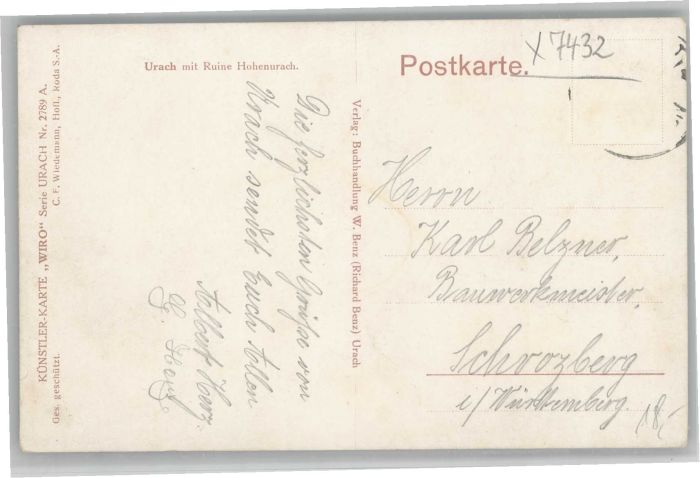 KÜNSTLER-KARTE „WIRO“ Serie URACH Nr. 2789 A.
Ges. geschützt.
C. F. Wiedemann, Hofl., Roda S.-A.
Urach mit Ruine Hohenurach.
Die herzlichsten Grüße von
Urach sendet Euch Allen
Albert Herz.
Verlag: Buchhandlung W. Benz (Richard Benz) Urach
Postkarte.
X 7432
Herrn
Karl Belzner,
Bauwerkmeister,
Schrozberg
i/Württemberg.
18,-